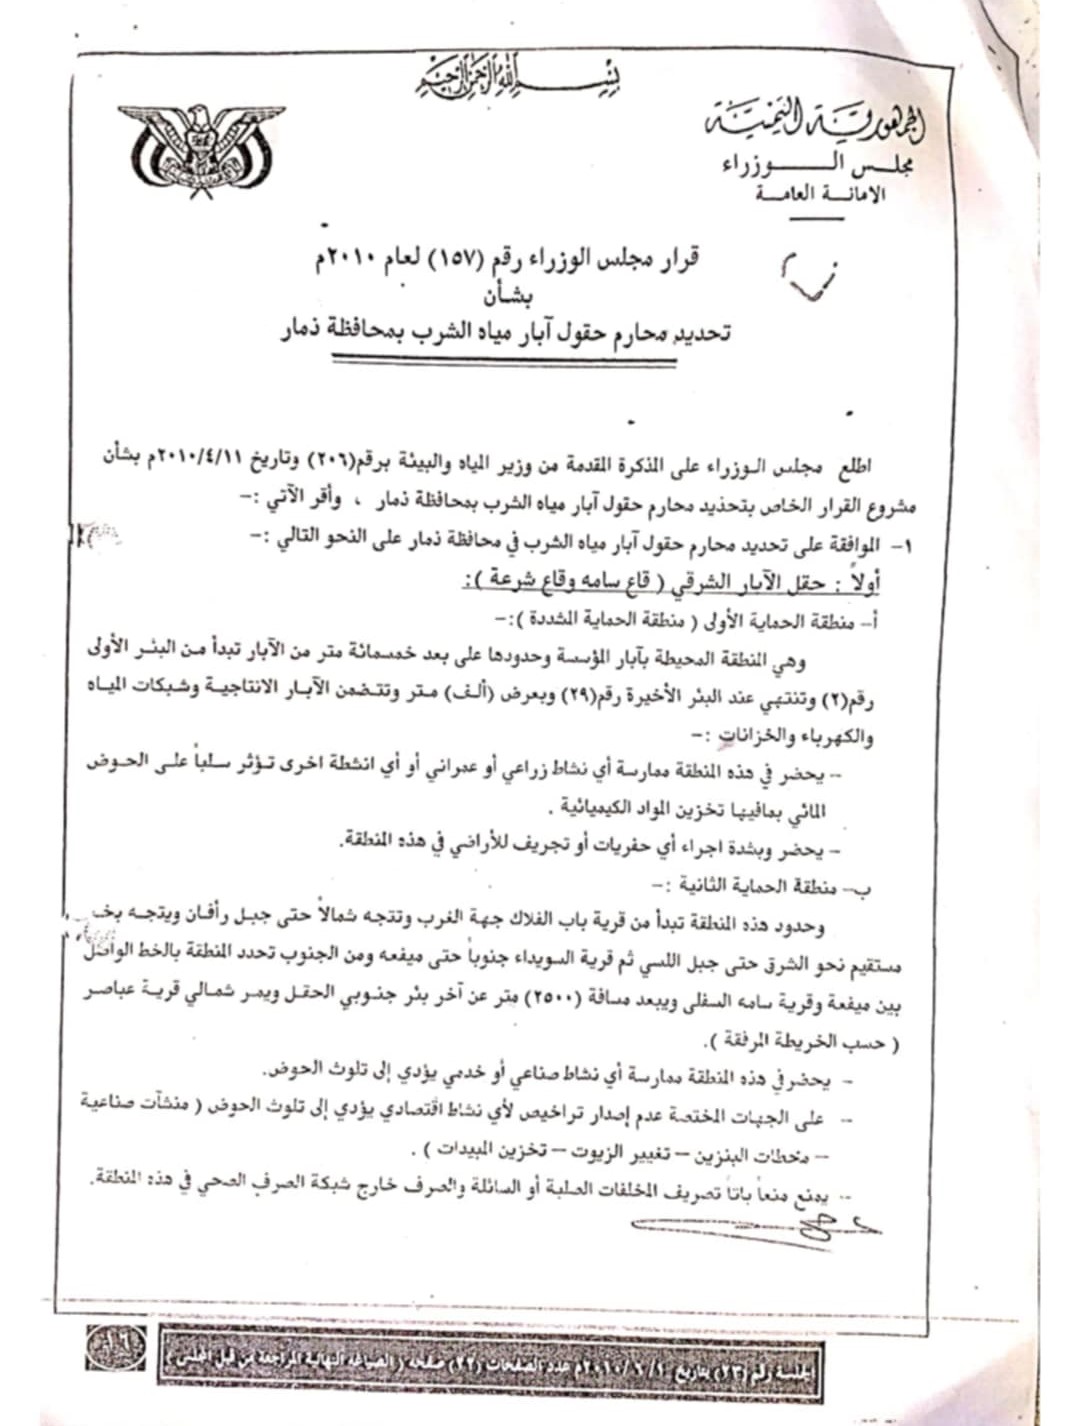 بسم الله الرحمن الرحيم
الجمهورية اليمنية
مجلس الوزراء
الامانة العامة
قرار مجلس الوزراء رقم (١٥٧) لعام ٢٠١٠م
بشأن
تحديد محارم حقول آبار مياه الشرب بمحافظة ذمار
اطلع مجلس الوزراء على المذكرة المقدمة من وزير المياه والبيئة برقم(٢٠٦) وتاريخ ٢٠١٠/٤/١١م بشأن
مشروع القرار الخاص بتحذيد محارم حقول آبار مياه الشرب بمحافظة ذمار ، وأقر الآتي :-
١- الموافقة على تحديد محارم حقول آبار مياه الشرب في محافظة ذمار على النحو التالي :-
أولاً : حقل الآبار الشرقي ( قاع سامه وقاع شرعة ):
أ- منطقة الحماية الأولى ( منطقة الحماية المشددة ):-
وهي المنطقة المحيطة بآبار المؤسسة وحدودها على بعد خمسمائة متر من الآبار تبدأ من البئر الأولى
رقم(٢) وتنتهي عند البئر الأخيرة رقم(٢٩) وبعرض (ألف) متر وتتضمن الآبار الانتاجية وشبكات المياه
والكهرباء والخزانات :-
- يحضر في هذه المنطقة ممارسة أي نشاط زراعي أو عمراني أو أي انشطة اخرى تؤثر سلباً على الحوض
المائي بمافيها تخزين المواد الكيميائية .
- يحضر وبشدة اجراء أي حفريات أو تجريف للأراضي في هذه المنطقة.
ب- منطقة الحماية الثانية :-
وحدود هذه المنطقة تبدأ من قرية باب الفلاك جهة الغرب وتتجه شمالاً حتى جبل رأفان ويتجه بخـ
مستقيم نحو الشرق حتى جبل اللسي ثم قرية السويداء جنوباً حتى ميفعه ومن الجنوب تحدد المنطقة بالخط الواصل
بين ميفعة وقرية سامه السفلى ويبعد مسافة (٢٥٠٠) متر عن آخر بئر جنوبي الحقل ويمر شمالي قرية عباصر
( حسب الخريطة المرفقة ).
- يحضر في هذه المنطقة ممارسة أي نشاط صناعي أو خدمي يؤدي إلى تلوث الحوض.
- على الجهات المختصة عدم إصدار تراخيص لأي نشاط اقتصادي يؤدي إلى تلوث الحوض ( منشآت صناعية
- محطات البنزين - تغيير الزيوت - تخزين المبيدات ) .
- يمنع منعاً باتاً تصريف المخلفات الصلبة أو السائلة والصرف خارج شبكة الصرف الصحي في هذه المنطقة.
جلسة رقم (٢٣) بتاريخ ٢٠١٠م عدد الصفحات (٢٢) صفحه ( الصياغة النهاية المراجعة من قبل المجلس )